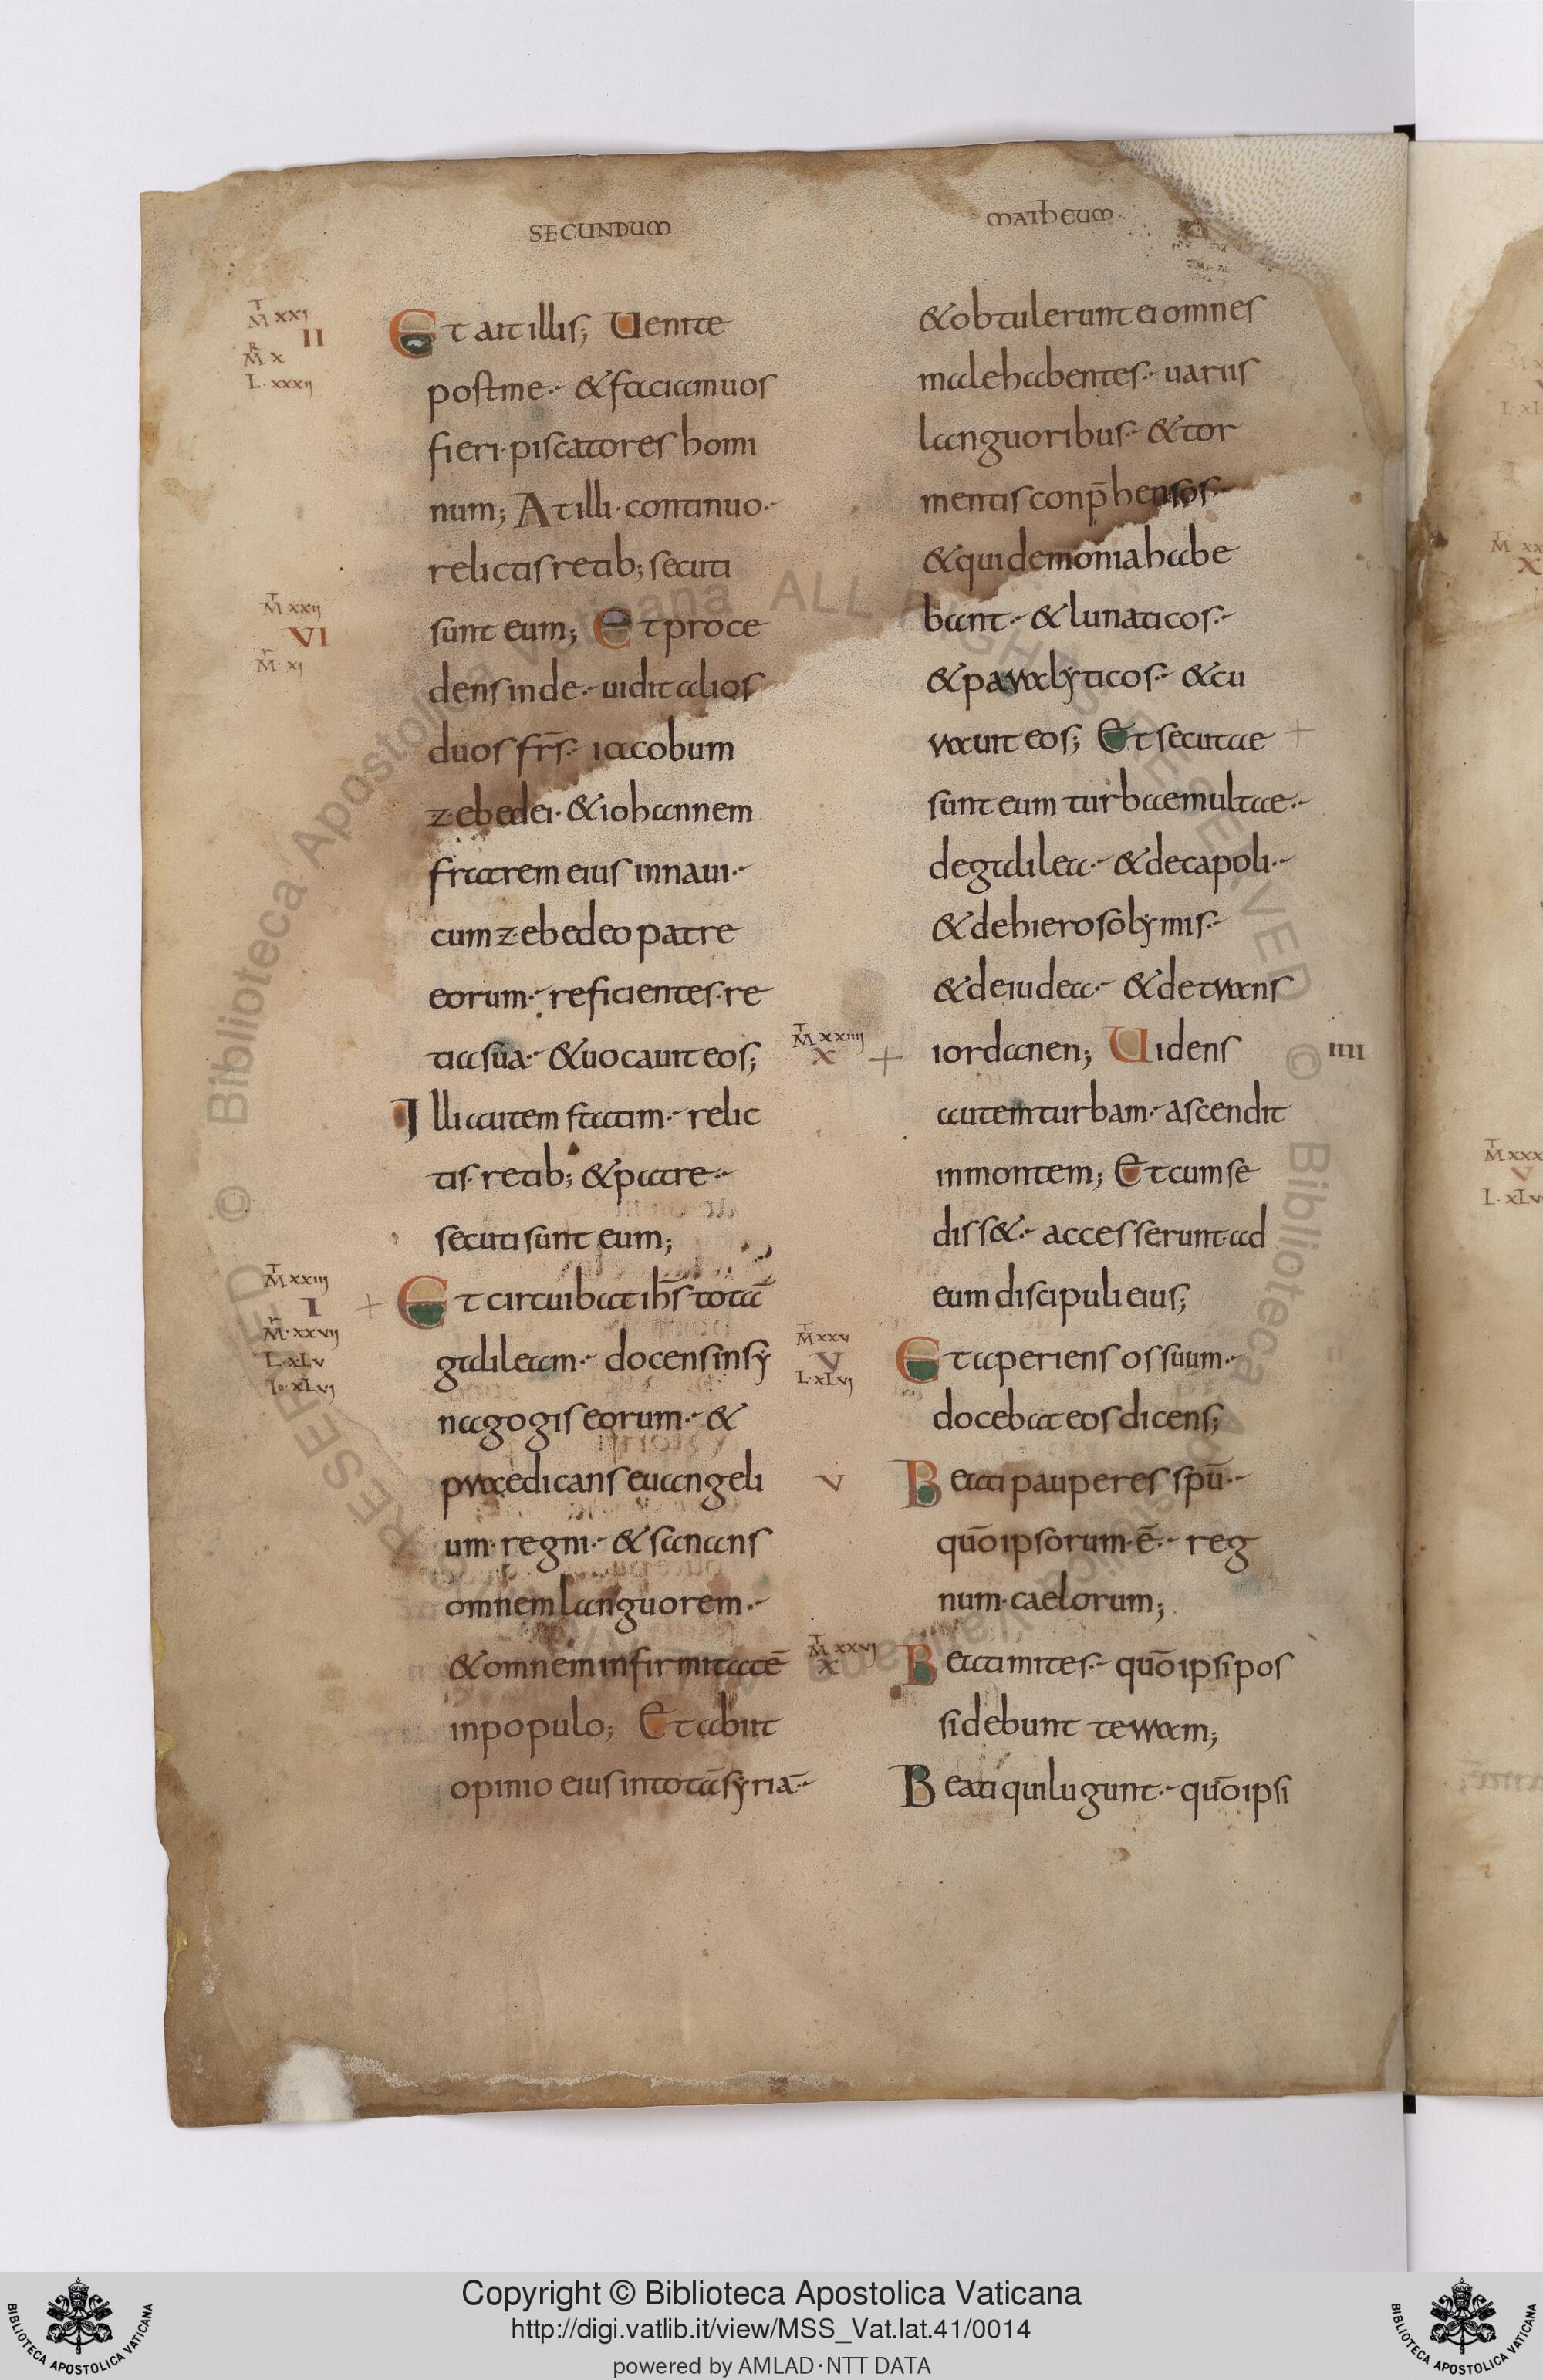 SECUNDUM
MATHEUM
T
M XXI
II
R
M X
L XXXII
Et ait illis; Uenite
post me · & faciam uos
fieri · piscatores homi
num; At illi · continuo ·
relictis retib; secuti
T
M XXII
VI
r
M · XI
sunt eum; Et proce
dens inde · uidit alios
duos frs̄ · iacobum
zebedei · & iohannem
fratrem eius in naui ·
cum zebedeo patre
eorum · reficientes · re
tia sua · & uocauit eos;
Illi autem statim · relic
tis · retib; & patre ·
secuti sunt eum;
T
M XXIII
I
r
M · XXVII
L · XLV
Io · XLVI
Et circuibat ih̄s totā
galileam · docens in sy
nagogis eorum · &
praedicans euangeli
um · regni · & sanans
omnem languorem ·
& omnem infirmitatē
in populo; Et abiit
opinio eius in totā syriā ·
& obtulerunt ei omnes
male habentes · uariis
languoribus · & tor
mentis conp̄hensos ·
& qui demonia habe
bant · & lunaticos ·
& paralyticos · & cu
rauit eos; Et secutae
sunt eum turbae multae ·
de galilea · & decapoli ·
& de hierosolymis ·
& de iudea · & de trans
T
M XXIIII
X
iordanen; Uidens
IIII
autem turbam · ascendit
in montem; Et cum se
diss& · accesserunt ad
eum discipuli eius;
T
M XXV
V
L · XLVI
Et aperiens os suum ·
docebat eos dicens;
V
Beati pauperes spū ·
quō ipsorum · ē · reg
num · caelorum;
T
M XXVI
X
Beati mites · quō ipsi pos
sidebunt terram;
Beati qui lugunt · quō ipsi
Copyright © Biblioteca Apostolica Vaticana
http://digi.vatlib.it/view/MSS_Vat.lat.41/0014
powered by AMLAD·NTT DATA
BIBLIOTECA APOSTOLICA VATICANA
BIBLIOTECA APOSTOLICA VATICANA